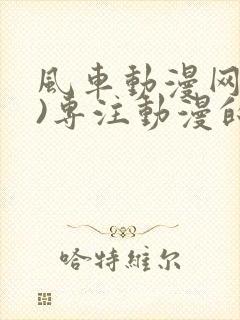 風車動漫网
)专注動漫的
哈特維尔